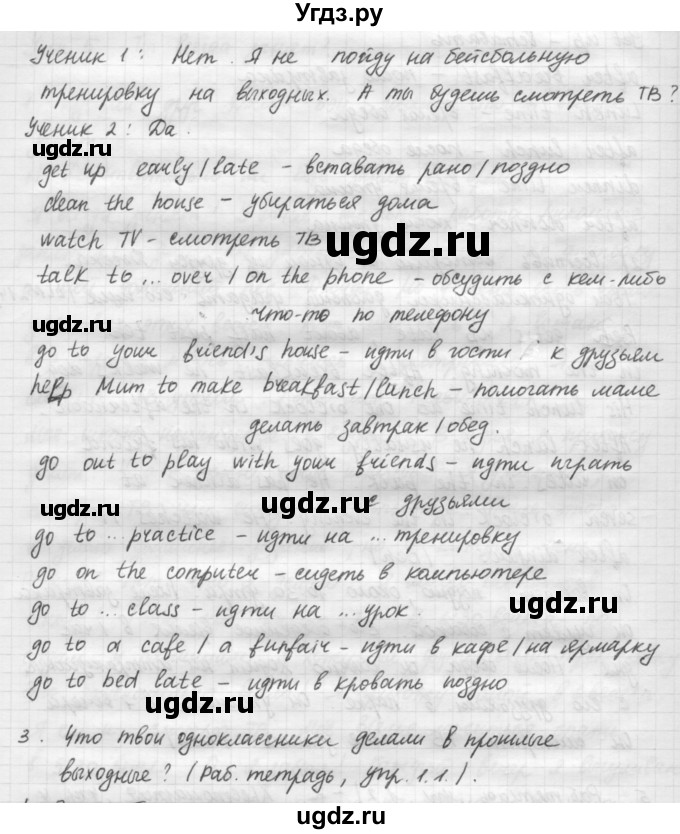 Угдз.ру
Ученик 1: Нет. Я не пойду на бейсбольную
тренировку на выходных. А ты будешь смотреть ТВ?
Ученик 2: Да.
ugdz.ru
get up early / late – вставать рано / поздно
clean the house – убираться дома
watch TV – смотреть ТВ
ugdz.ru
talk to ... over / on the phone – обсудить с кем-либо
что-то по телефону
ugdz.ru
go to your friend's house – идти в гости к друзьям
help Mum to make breakfast / lunch – помогать маме
делать завтрак / обед.
go out to play with your friends – идти играть
с друзьями
ugdz.ru
ugdz.ru
go to ... practice – идти на ... тренировку
go on the computer – сидеть в компьютере
go to ... class – идти на ... урок.
ugdz.ru
go to a cafe / a funfair – идти в кафе / на ярмарку
go to bed late – идти в кровать поздно
ugdz.ru
3. Что твои одноклассники делали в прошлые
выходные? (Раб. тетрадь, упр. 1.1).
ugdz.ru